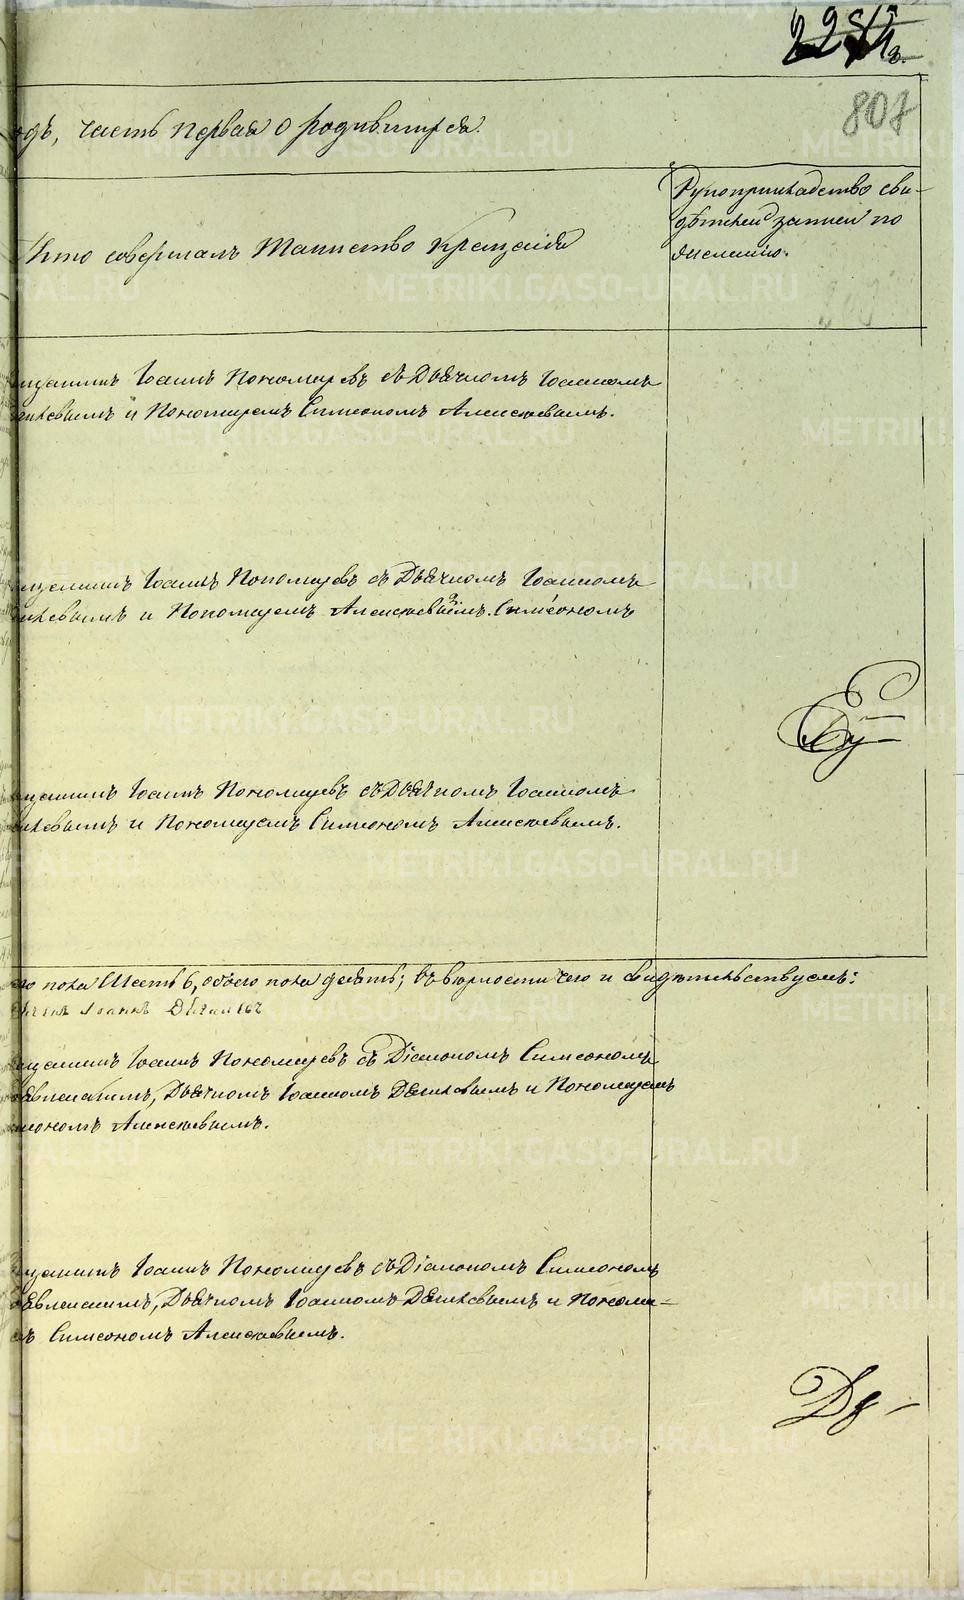 807
одъ, часть первая о родившихся.
Кто совершалъ Таинство крещенія
Рукоприкладство сви-
дѣтелей записи по
желанію.
щенникъ Іоаннъ Пономаревъ съ Дьячкомъ Іоанномъ
и Пономаремъ Симеономъ Алексѣевымъ.
щенникъ Іоаннъ Пономаревъ съ Дьячкомъ Іоанномъ
и Пономаремъ Алексѣевымъ Симеономъ
щенникъ Іоаннъ Пономаревъ съ Дьячкомъ Іоанномъ
и Пономаремъ Симеономъ Алексѣевымъ.
го пола шесть 6, обоего пола десять; въ вѣрности чего и свидѣтельствуемъ:
Іоаннъ
щенникъ Іоаннъ Пономаревъ съ Діакономъ Симеономъ
Дьячкомъ Іоанномъ и Пономаремъ
меономъ Алексѣевымъ.
щенникъ Іоаннъ Пономаревъ съ Діакономъ Симеономъ
Дьячкомъ Іоанномъ и Понома-
Симеономъ Алексѣевымъ.
METRIKI.GASO-URAL.RU